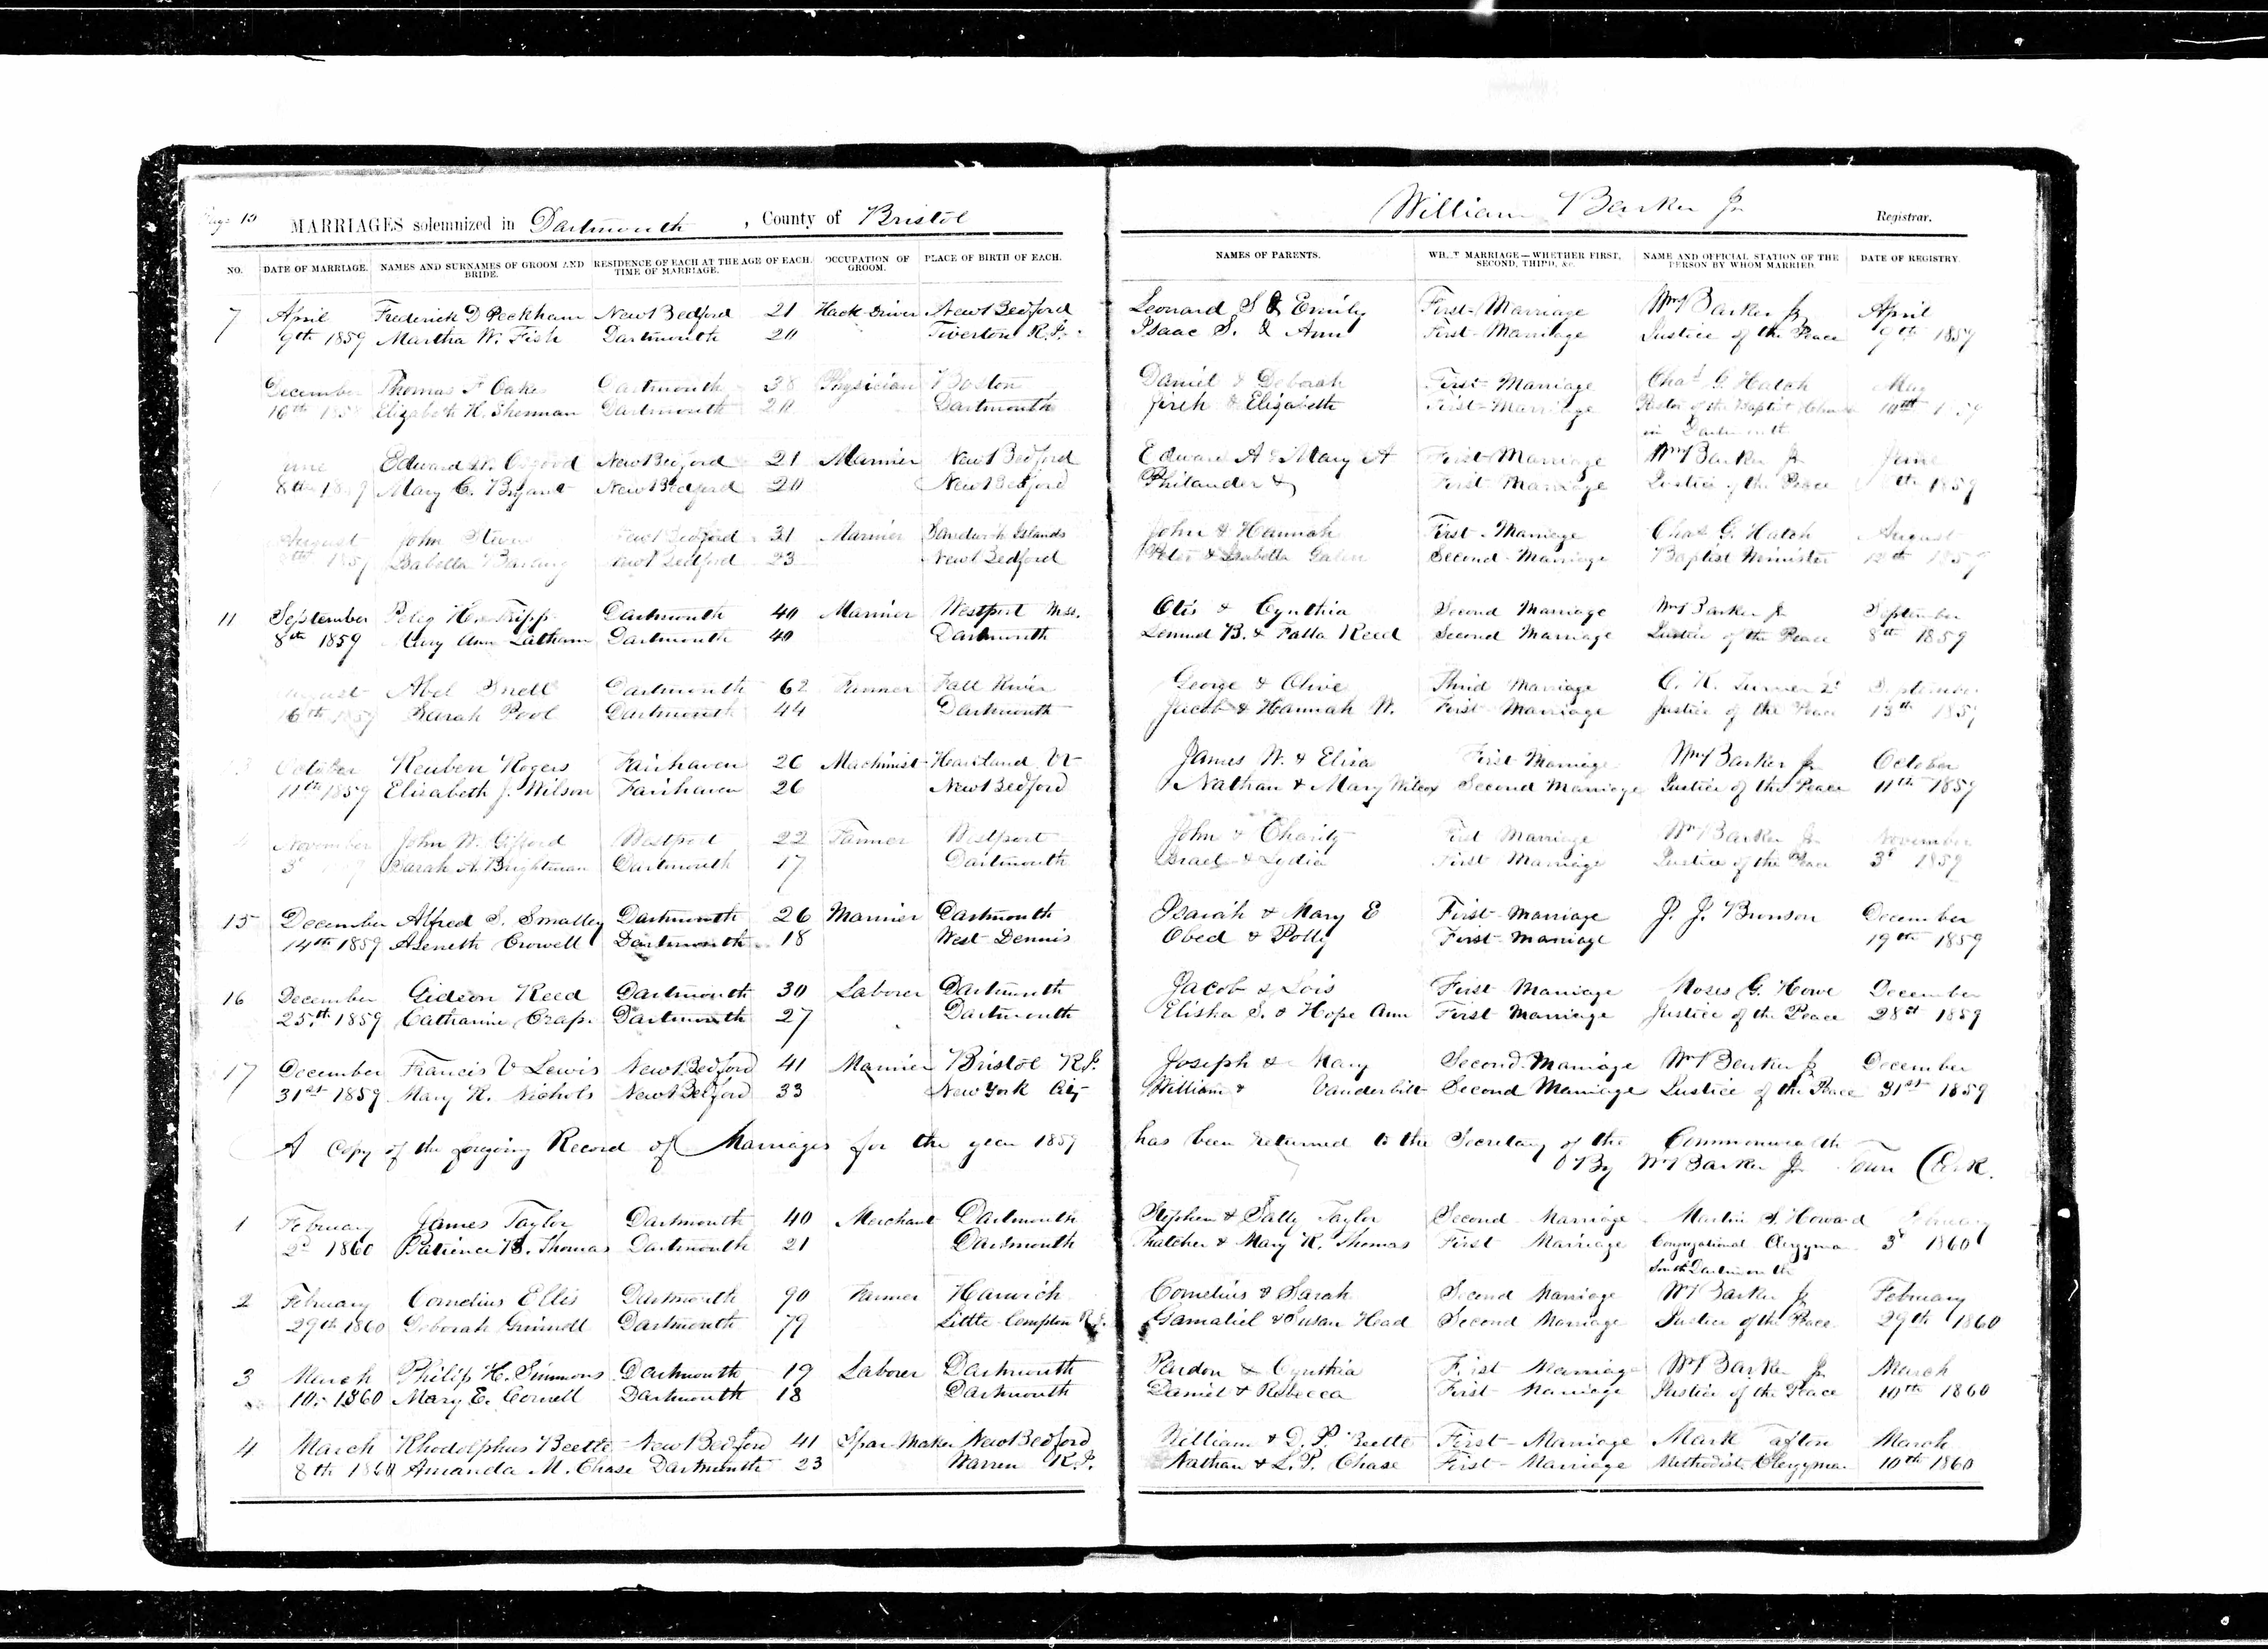 Page 15 MARRIAGES solemnized in Dartmouth, County of Bristol William Barker Jr Registrar.
NO. DATE OF MARRIAGE. NAMES AND SURNAMES OF GROOM AND BRIDE. RESIDENCE OF EACH AT THE TIME OF MARRIAGE. AGE OF EACH. OCCUPATION OF GROOM. PLACE OF BIRTH OF EACH. NAMES OF PARENTS. WHAT MARRIAGE—WHETHER FIRST, SECOND, THIRD, &c. NAME AND OFFICIAL STATION OF THE PERSON BY WHOM MARRIED. DATE OF REGISTRY.
7 April Frederick D Peckham New Bedford 21 Hack Driver New Bedford Leonard S & Emily First Marriage Wm Barker Jr April
9th 1859 Martha W. Fish Dartmouth 20 Tiverton R.I. Isaac S. & Ann First Marriage Justice of the Peace 9th 1859
December Thomas Dartmouth 38 Physician Boston Daniel & Deborah First Marriage Chas G. Hatch May
16th Elizabeth H. Sherman Dartmouth Dartmouth Jireh & Elizabeth First Marriage Pastor of the Baptist Church
in Dartmouth
June Edward New Bedford 21 Mariner New Bedford Edward A & Mary A First Marriage Wm Barker Jr June
8th Mary C. Bryant New Bedford 20 New Bedford Philander & First Marriage Justice of the Peace 1859
August John New Bedford 31 Mariner Sandwich Islands John & Hannah First Marriage Chas G. Hatch August
Isabella New Bedford 23 New Bedford Peter & Isabella Second Marriage Baptist Minister
11 September Peleg H. Tripp Dartmouth 40 Mariner Westport Mss. Otis & Cynthia Second Marriage Wm Barker Jr September
8th 1859 Mary Ann Latham Dartmouth 40 Dartmouth Lemuel B. & Reed Second Marriage Justice of the Peace 8th 1859
August Abel Snell Dartmouth 62 Farmer Fall River George & Olive Third Marriage September
16th 1859 Sarah Pool Dartmouth 44 Dartmouth Jacob & Hannah W. First Marriage Justice of the Peace 13th 1859
13 October Reuben Rogers Fairhaven 26 Machinist Heartland Vt James W. & Eliza First Marriage Wm Barker Jr October
11th 1859 Elisabeth J. Wilson Fairhaven 26 New Bedford Nathan & Mary Wilcox Second Marriage Justice of the Peace 11th 1859
November John W. Gifford Westport 22 Farmer Westport John & Charity First Marriage Wm Barker Jr November
3d Sarah A. Brightman Dartmouth 17 Dartmouth Israel & Lydia First Marriage Justice of the Peace 3d 1859
15 December Alfred S. Smalley Dartmouth 26 Mariner Dartmouth Isaiah & Mary E First Marriage J. J. Bronson December
14th 1859 Aseneth Crowell Dartmouth 18 West Dennis Obed & Polly First Marriage 19th 1859
16 December Gideon Reed Dartmouth 30 Laborer Dartmouth Jacob & Lois First Marriage Moses G. Howe December
25th 1859 Catharine Crapo Dartmouth 27 Dartmouth Elisha S. & Hope Ann First Marriage Justice of the Peace 28st 1859
17 December Francis V Lewis New Bedford 41 Mariner Bristol R.I. Joseph & Mary Second Marriage Wm Barker Jr December
31st 1859 Mary R. Nichols New Bedford 33 New York City William & Vanderbilt Second Marriage Justice of the Peace 31st 1859
A Copy of the foregoing Record of Marriages for the year 1859 has been returned to the Secretary of the Commonwealth
By Wm Barker Jr Town Clerk.
1 February James Taylor Dartmouth 40 Merchant Dartmouth Stephen & Sally Taylor Second Marriage Martin S. Howard February
2d 1860 Patience B. Thomas Dartmouth 21 Dartmouth Thatcher & Mary R. Thomas First Marriage Congregational Clergyman 3d 1860
South Dartmouth
2 February Cornelius Ellis Dartmouth 90 Farmer Harwich Cornelius & Sarah Second Marriage Wm Barker Jr February
29th 1860 Deborah Grinnell Dartmouth 79 Little Compton R.I. Gamaliel & Susan Head Second Marriage Justice of the Peace 29th 1860
3 March Philip H. Simmons Dartmouth 19 Laborer Dartmouth Pardon & Cynthia First Marriage Wm Barker Jr March
10. 1860 Mary E. Cornell Dartmouth 18 Dartmouth Daniel & Rebecca First Marriage Justice of the Peace 10th 1860
4 March Rhodolphus Beetle New Bedford 41 Spar Maker New Bedford William & D. P. Beetle First Marriage Mark March
8th 1860 Amanda M. Chase Dartmouth 23 Warren R.I. Nathan & L. P. Chase First Marriage Methodist Clergyman 10th 1860